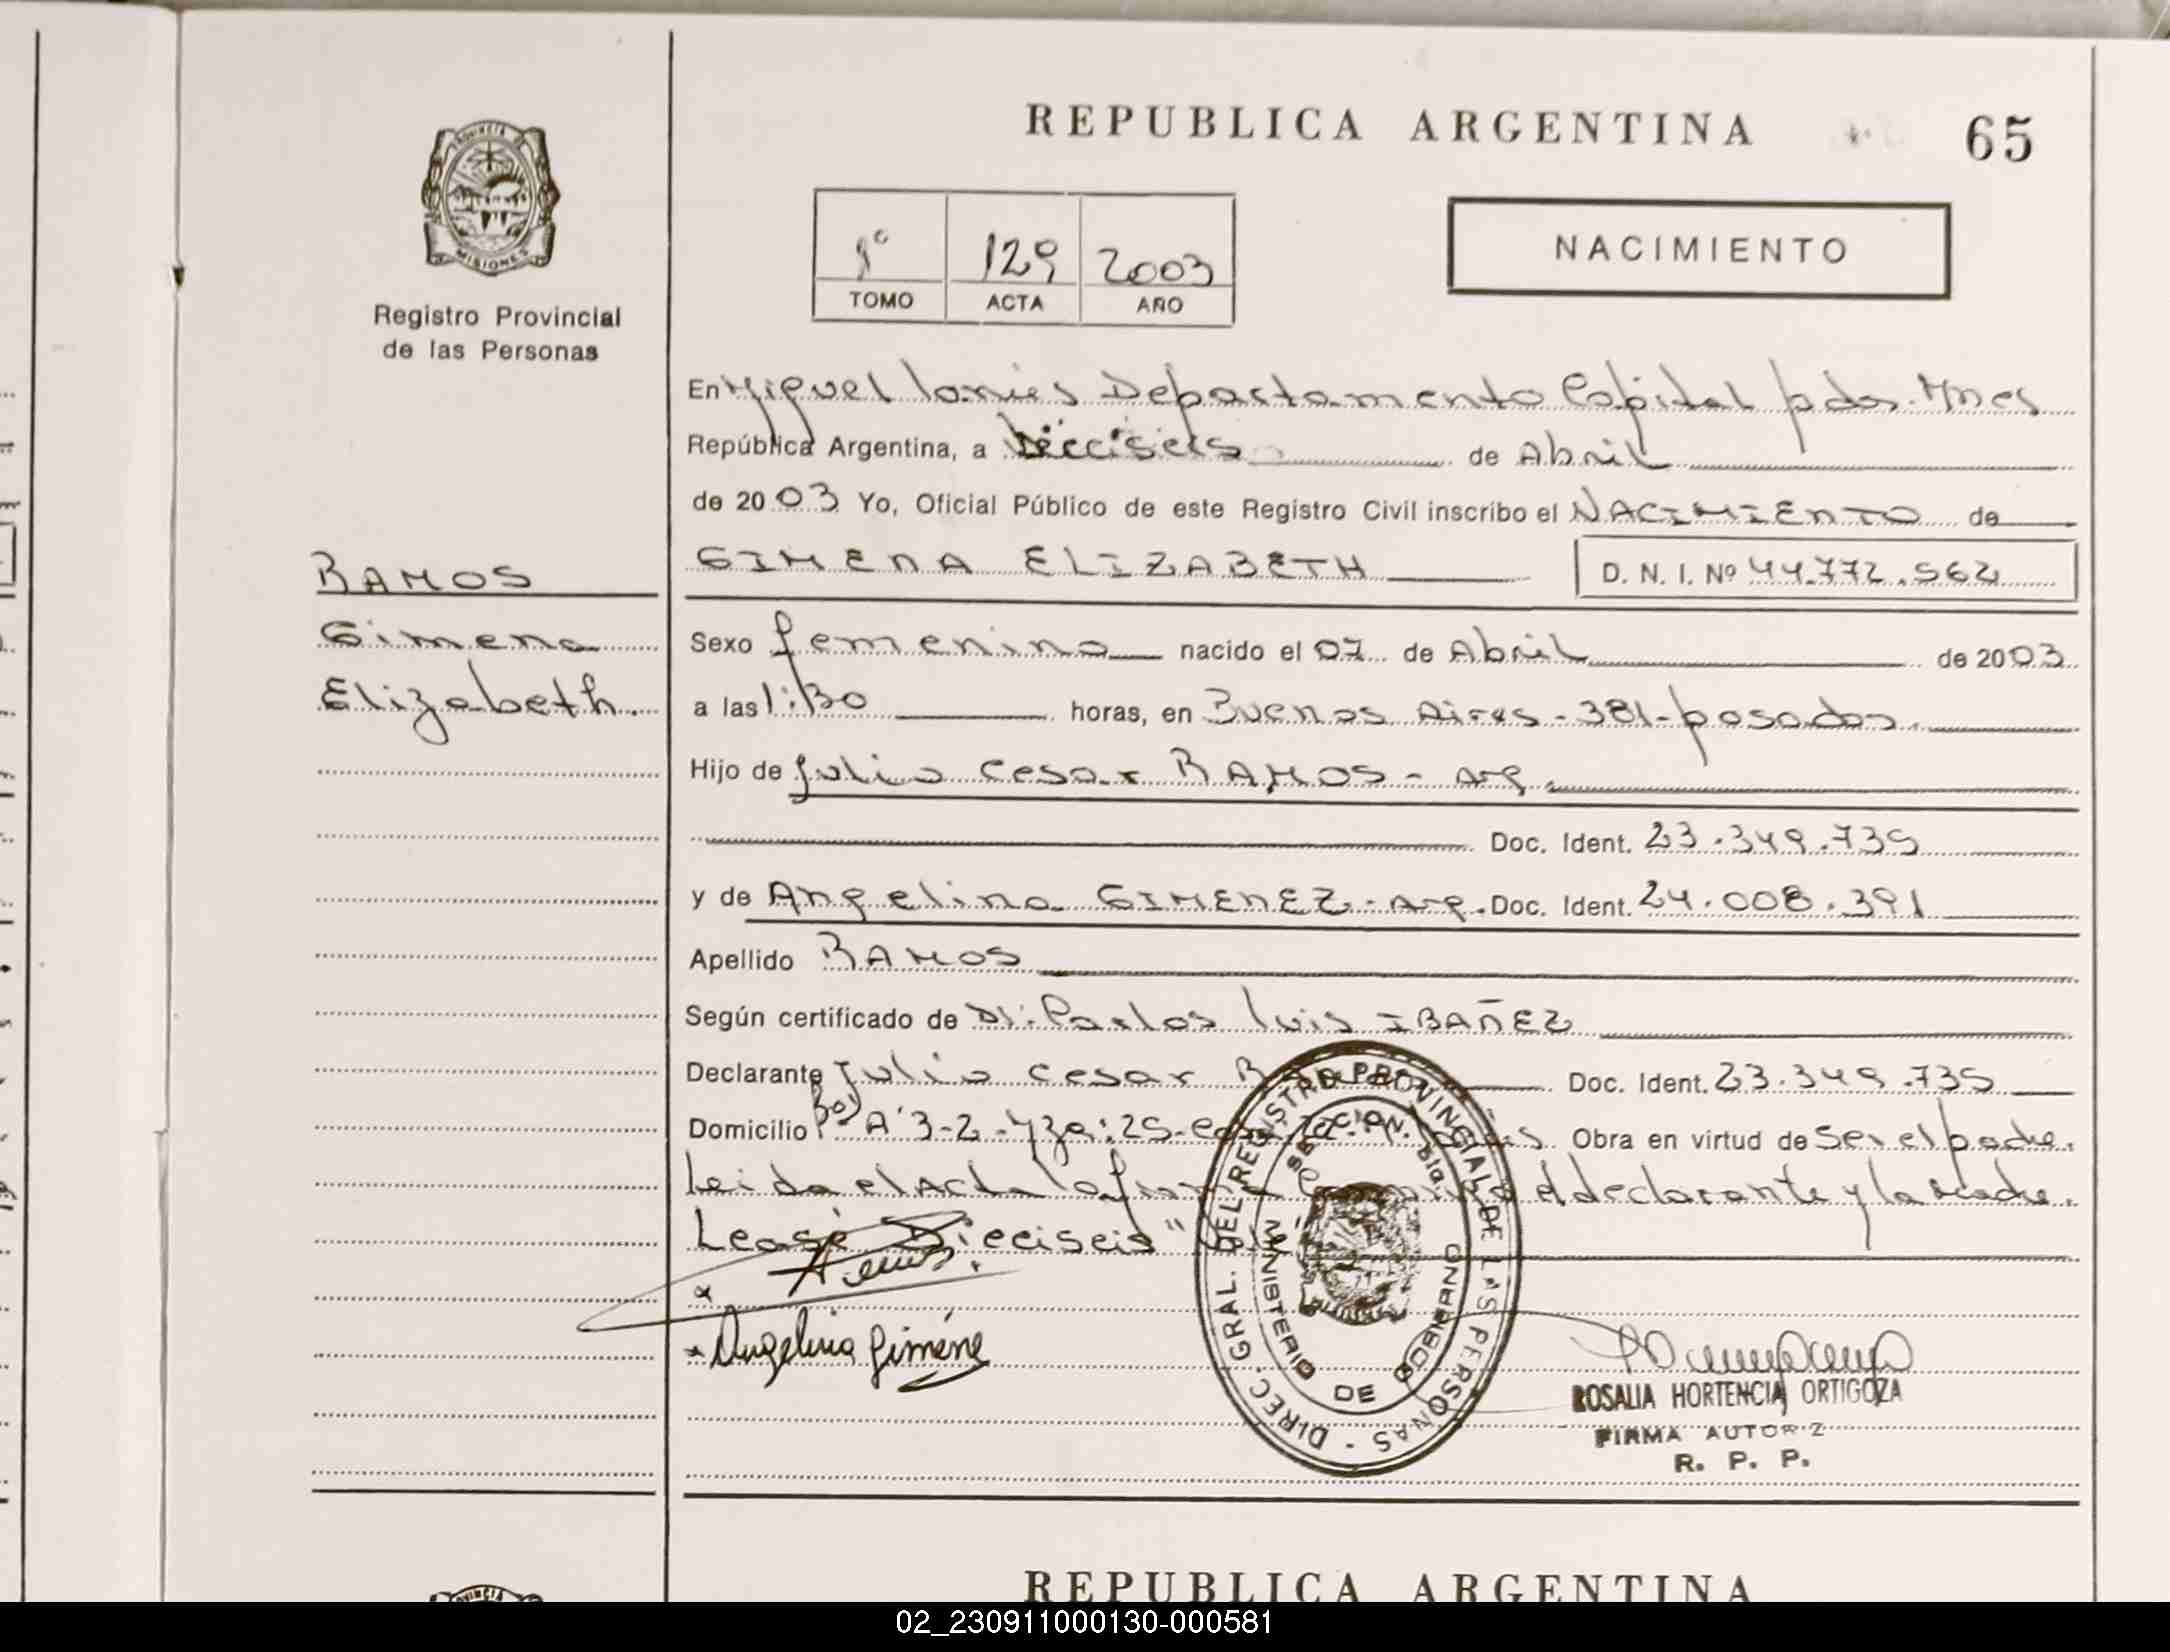 REPUBLICA ARGENTINA
65
PROVINCIA DE
MISIONES
Registro Provincial
de las Personas
1° 129 2003
TOMO ACTA AÑO
NACIMIENTO
En Miguel Lanús Departamento Capital pdas. Mnes
República Argentina, a Dieciseis de Abril
de 2003 Yo, Oficial Público de este Registro Civil inscribo el NACIMIENTO de
RAMOS
Gimena
Elizabeth.
GIMENA ELIZABETH D. N. I. Nº 44.772.562
Sexo femenino nacido el 07 de Abril de 2003
a las 1:30 horas, en Buenos Aires - 381 - posadas.
Hijo de Julio Cesar RAMOS - Arg.
Doc. Ident. 23.349.735
y de Angelina GIMENEZ - Arg. Doc. Ident. 24.008.391
Apellido RAMOS
Según certificado de Dr. Carlos Luis IBAÑEZ
Declarante Julio Cesar R Doc. Ident. 23.349.735
Domicilio A 3-2 Obra en virtud de ser el padre.
Leida el Acta la el declarante y la madre.
Lease Dieciseis"
Angelina Giméne
DIREC. GRAL. DEL REGISTRO PROVINCIAL DE LAS PERSONAS -
MINISTERIO DE GOBIERNO
ROSALIA HORTENCIA ORTIGOZA
FIRMA AUTORIZ
R. P. P.
REPUBLICA ARGENTINA
02_230911000130-000581